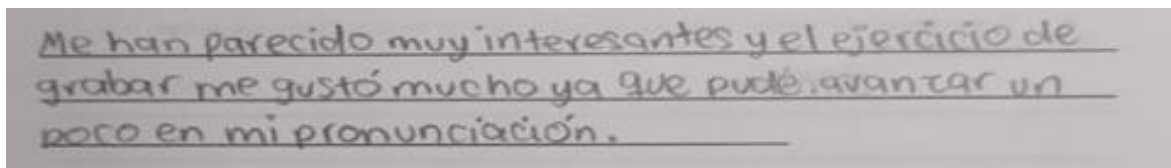 Me han parecido muy interesantes y el ejercicio de
grabar me gustó mucho ya que pude avanzar un
poco en mi pronunciación.